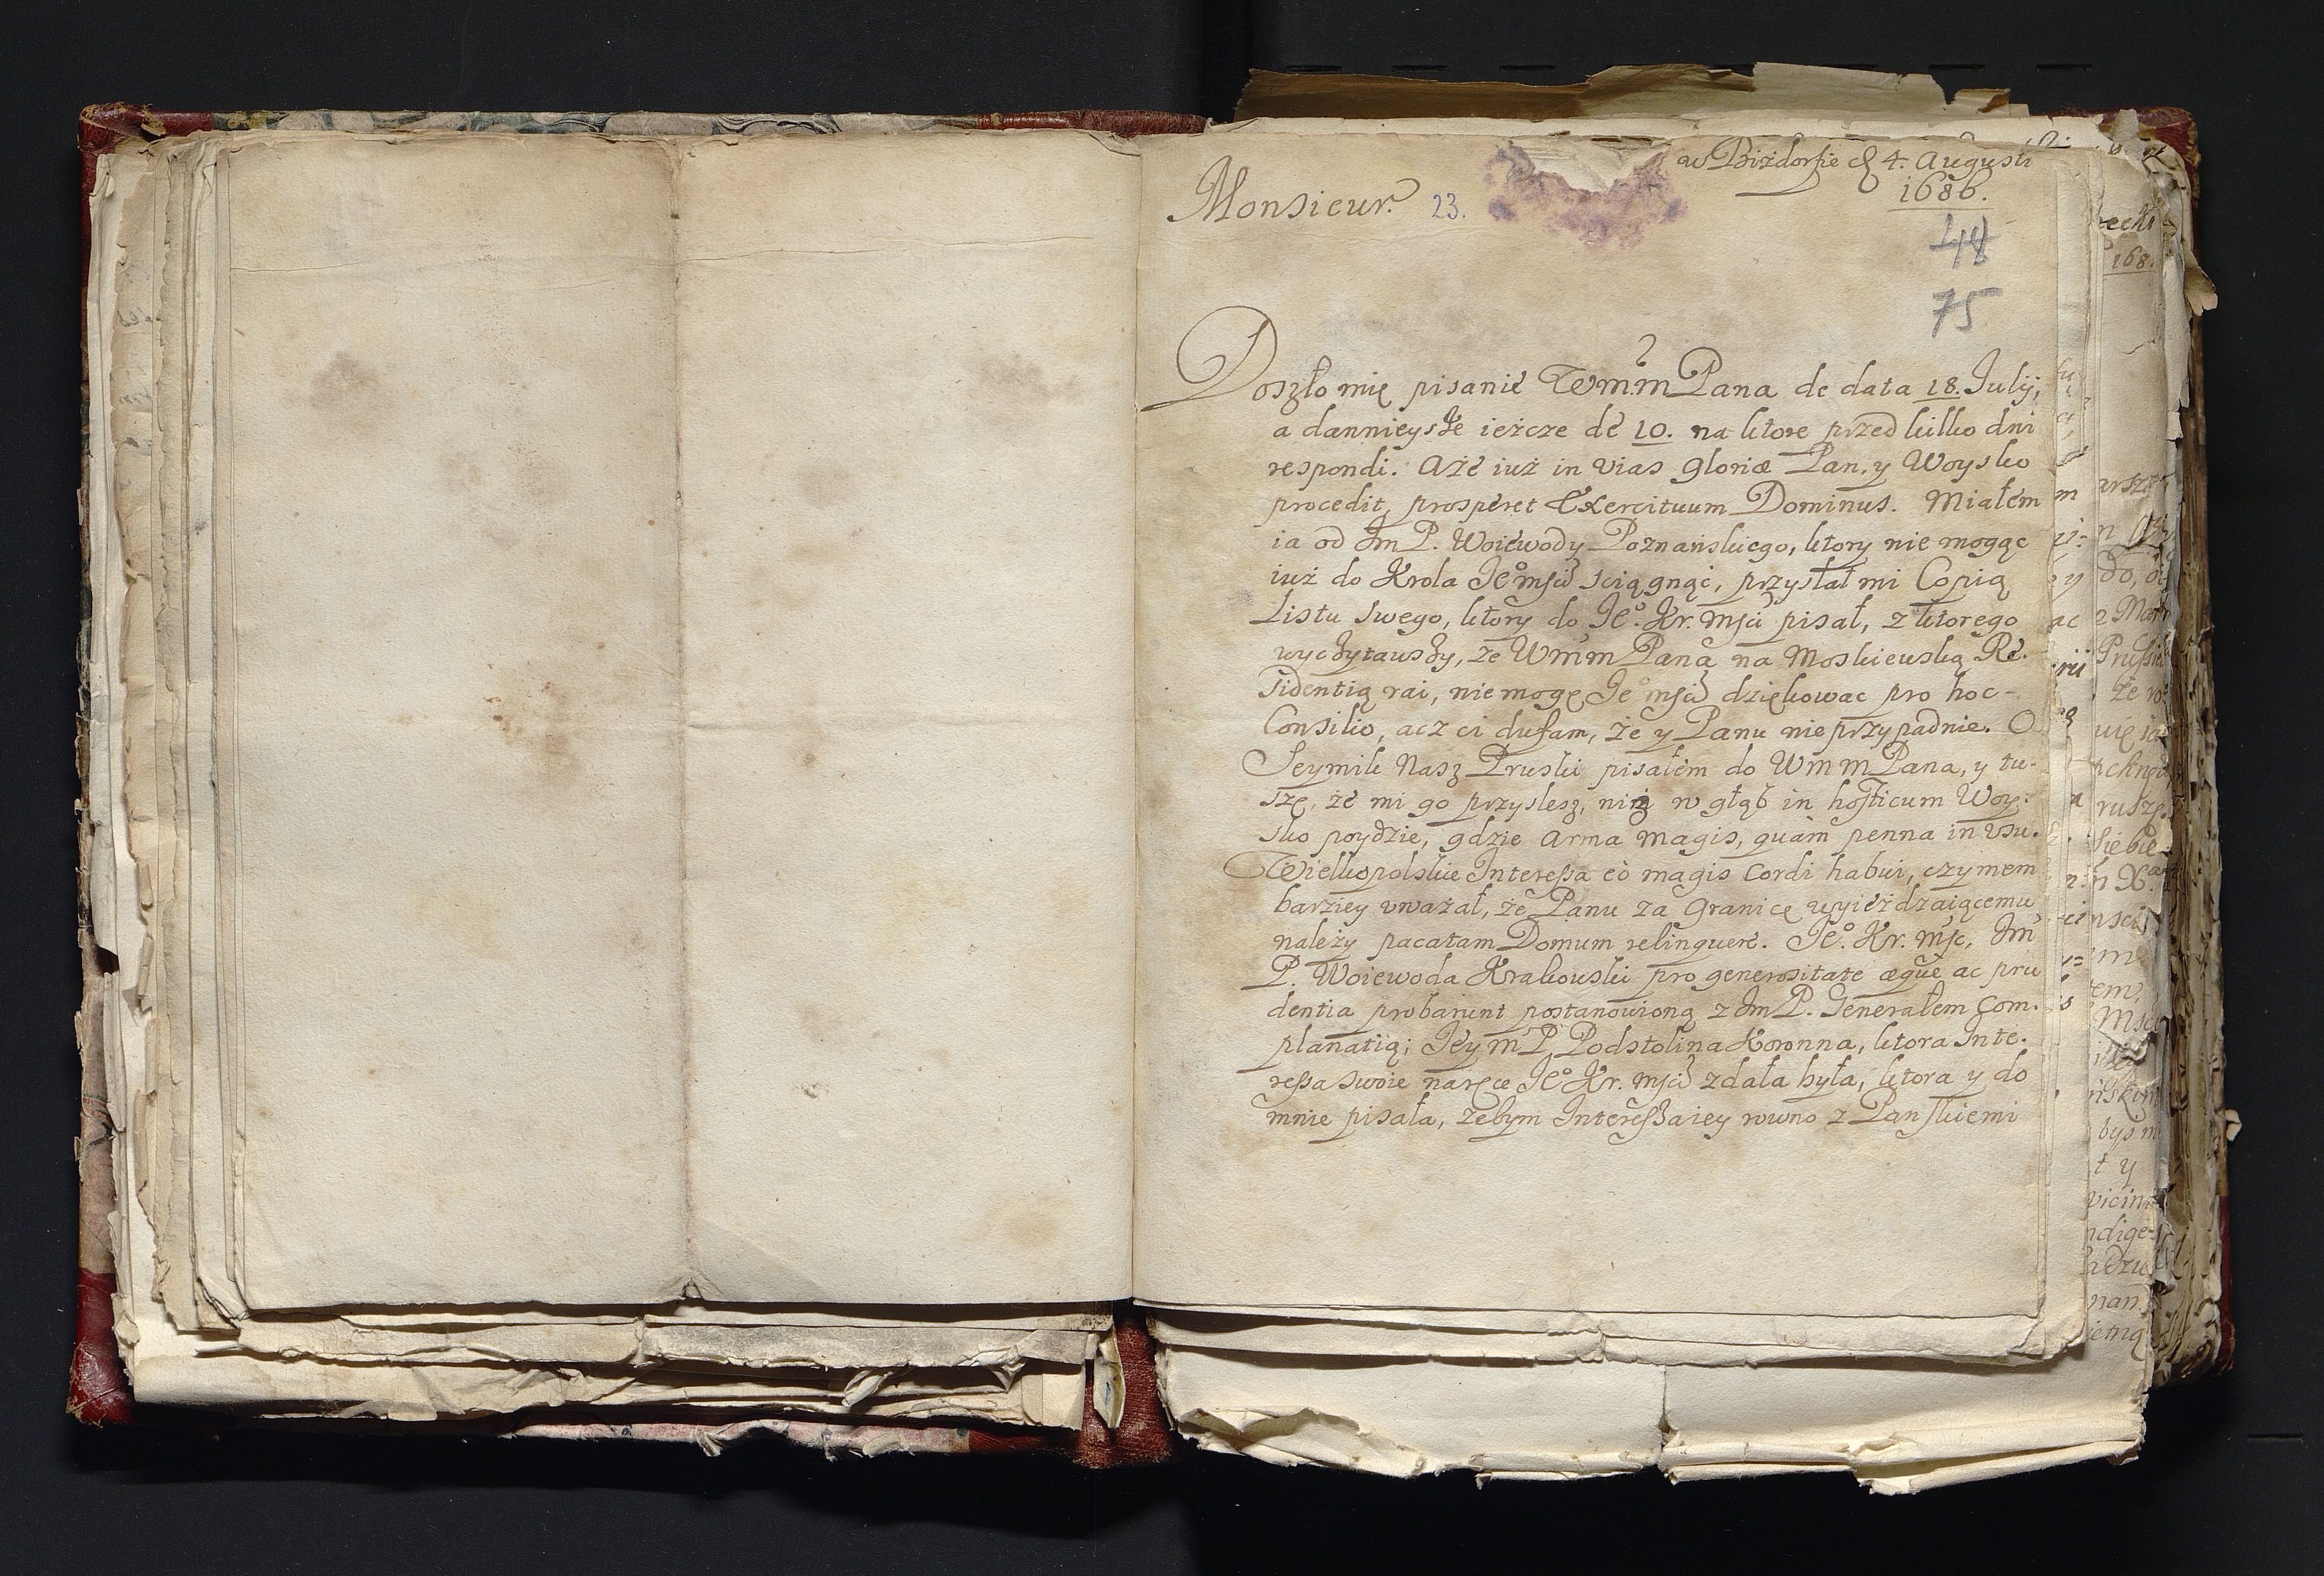 w Biżdorfie d 4. Augusti
1686.
Monsieur. 23.
48
75
Doszło mię pisanie Wm.m Pana de data 18. Julij,
a dawnieysze ieżcze de 10. na ktore przed kilko dni
respondi. Aże iuż in vias gloriæ Pan, y Woysko
procedit, prosperet Exercituum Dominus. Miałem
ia od Jm P. Woiewody Poznańskiego, ktory nie mogąc
iuż do Krola Jeo mści sciągnąć, przysłał mi Copią
Listu swego, ktory do Jeo. Kr. mści pisał, z ktorego
wyczytawszy, że Wmm Pana na Moskiewską Re-
sidentią rai, nie mogę Jeo mści dziękowac pro hoc
Consilio, acz ci dufam, że y Panu nie przypadnie. O
Seymik Nasz Pruski pisałem do Wmm Pana, y tu-
szę, że mi go przyslesz, niż w głąb in hosticum Woy-
sko poydzie, gdzie arma magis, quàm penna in usu.
Wielkopolskie Interessa eò magis Cordi habui, czymem
barziey uważał, że Panu za Granicę wyieżdzaiącemu
należy pacatam Domum relinquere. Jeo. Kr. mść, Jm
P. Woiewoda Krakowski pro generositate æquè ac pru
dentia probarunt postanowioną z Jm P. Generałem Com-
planatią; Jey m P Podstolina Koronna, ktora Inte-
ressa swoie na ręce Jeo Kr. mści zdała była, ktora y do
mnie pisała, żebym Interessa iey rowno z Panskiemi